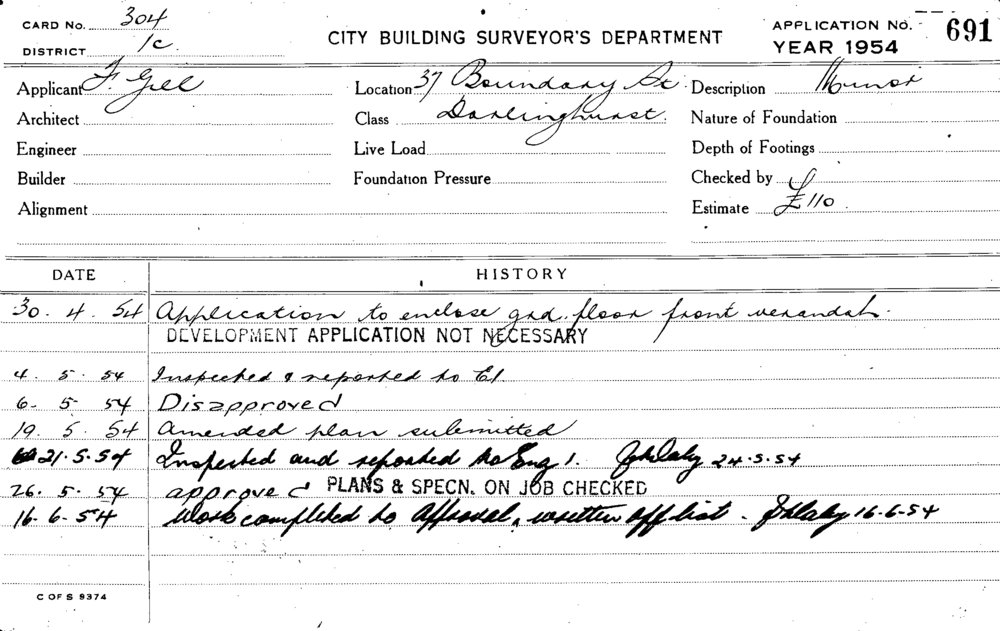 CARD No. 304
DISTRICT 1c
CITY BUILDING SURVEYOR'S DEPARTMENT
APPLICATION No. 691
YEAR 1954
Applicant F. Gell Location 37 Boundary St. Description Minor
Architect Class Darlinghurst. Nature of Foundation
Engineer Live Load Depth of Footings
Builder Foundation Pressure Checked by
Alignment Estimate £110
DATE HISTORY
30. 4. 54 Application to enclose grd. floor front verandah.
DEVELOPMENT APPLICATION NOT NECESSARY
4. 5. 54 Inspected & reported to E1.
6. 5. 54 Disapproved
19. 5. 54 Amended plan submitted
21.5.54 Inspected and reported to Eng 1. 24.5.54
26. 5. 54 approved PLANS & SPECN. ON JOB CHECKED
16. 6. 54 Work completed to Approval, written off list - 16.6.54
C OF S 9374